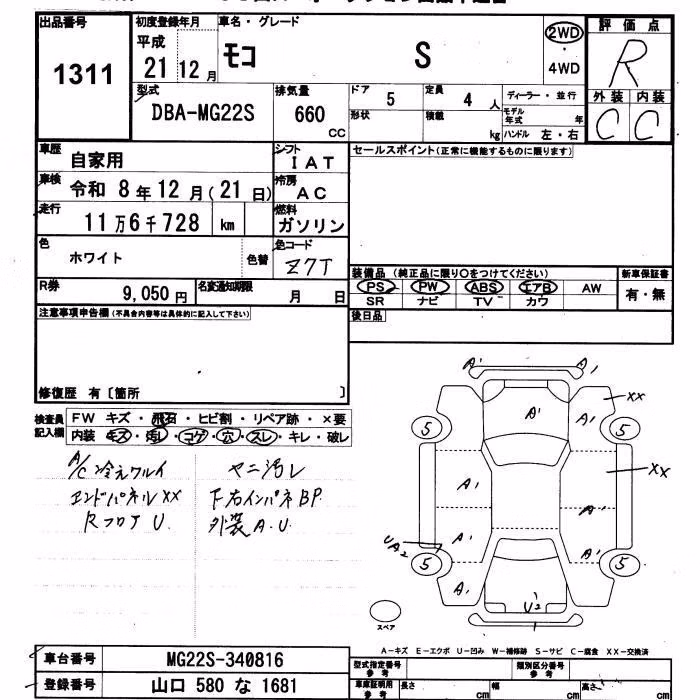 出品番号
1311
初度登録年月
平成
21 12月
車名・グレード
モコ S
2WD
・
4WD
評価点
R
外装 内装
C C
型式
DBA-MG22S
排気量
660
CC
ドア 5
定員 4 人
ディーラー・並行
形状
積載 kg
モデル年式 年
ハンドル 左・右
車歴
自家用
シフト
IAT
車検
令和 8年 12月(21日)
冷房
AC
走行
11万6千728 km
燃料
ガソリン
色
ホワイト
色替
色コード
Z7T
R券
9,050円
名変通知期限
月 日
セールスポイント(正常に機能するものに限ります)
装備品 (純正品に限り〇をつけてください)
新車保証書
PS PW ABS エアB AW
有・無
SR ナビ TV カワ
後日品
注意事項申告欄(不具合内容等は具体的に記入して下さい)
修復歴 有〔箇所 〕
検査員
記入欄
FW キズ・飛石・ヒビ割・リペア跡・×要
内装 キズ・汚レ・コゲ・穴・スレ・キレ・破レ
A/C冷えワルイ
エンドパネルXX
RフロアU
ヤニ汚レ
下右インパネBP
外装A.U
A1 A1
A1 A1 XX
5 5
A1 XX
A1
UA2 A1 A1
5 5
A1 U2
スペア
A-キズ E-エクボ U-凹み W-補修跡 S-サビ C-腐食 XX-交換済
車台番号
MG22S-340816
登録番号
山口 580 な 1681
型式指定番号
参考
類別区分番号
参考
車庫証明用
参考
長さ cm
幅 cm
高さ cm